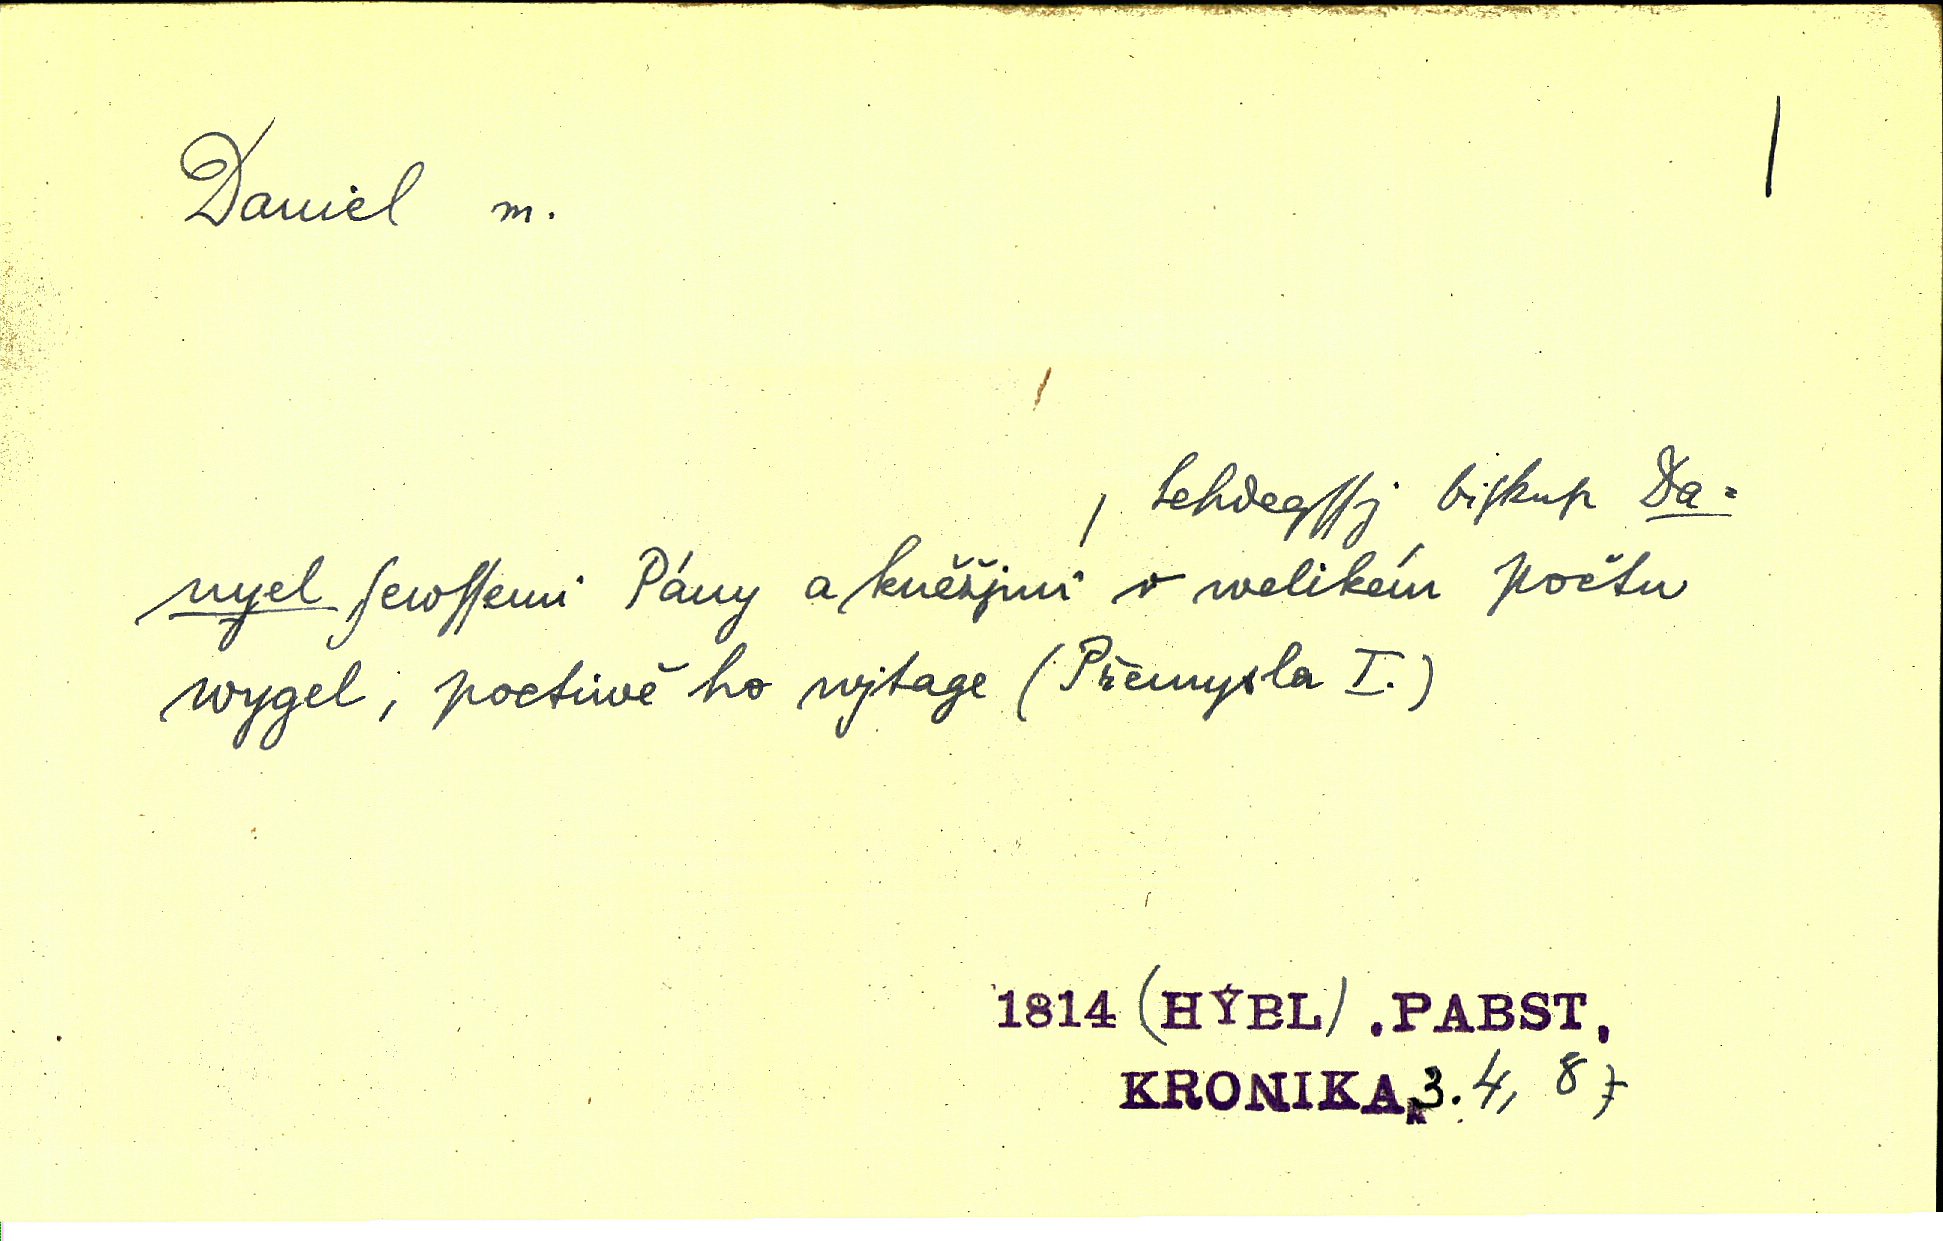 Daniel m.
, tehdegſſj biſkup Da=
nyel ſewſſemi Pány a kněžjmi v welikém počtu
wygel, poctiwě ho wjtage (Přemysla I.)
1814 (HÝBL). PABST,
KRONIKA, 3.4, 87